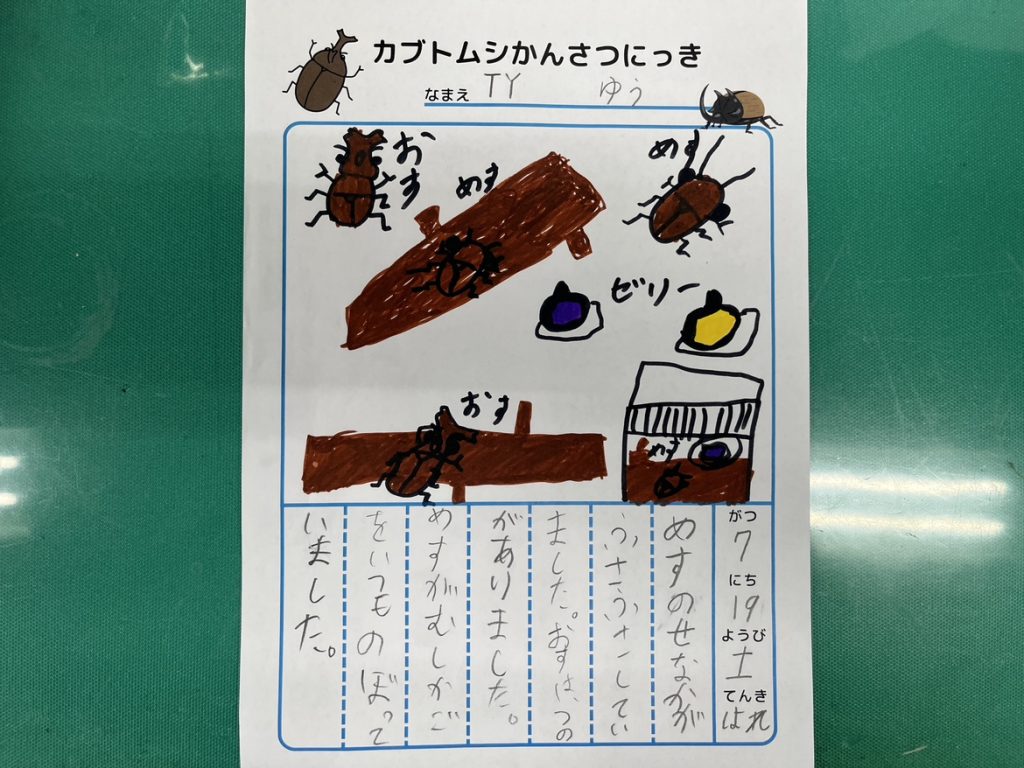 カブトムシかんさつにっき
なまえ TY ゆう
おす
めす
めす
ゼリー
おす
めず
がつ 7 にち 19 ようび 土 てんき はれ
めすのせなかが
ふさふさしてい
ました。おすは、つの
がありました。
めすがむしかご
をいつものぼって
いました。